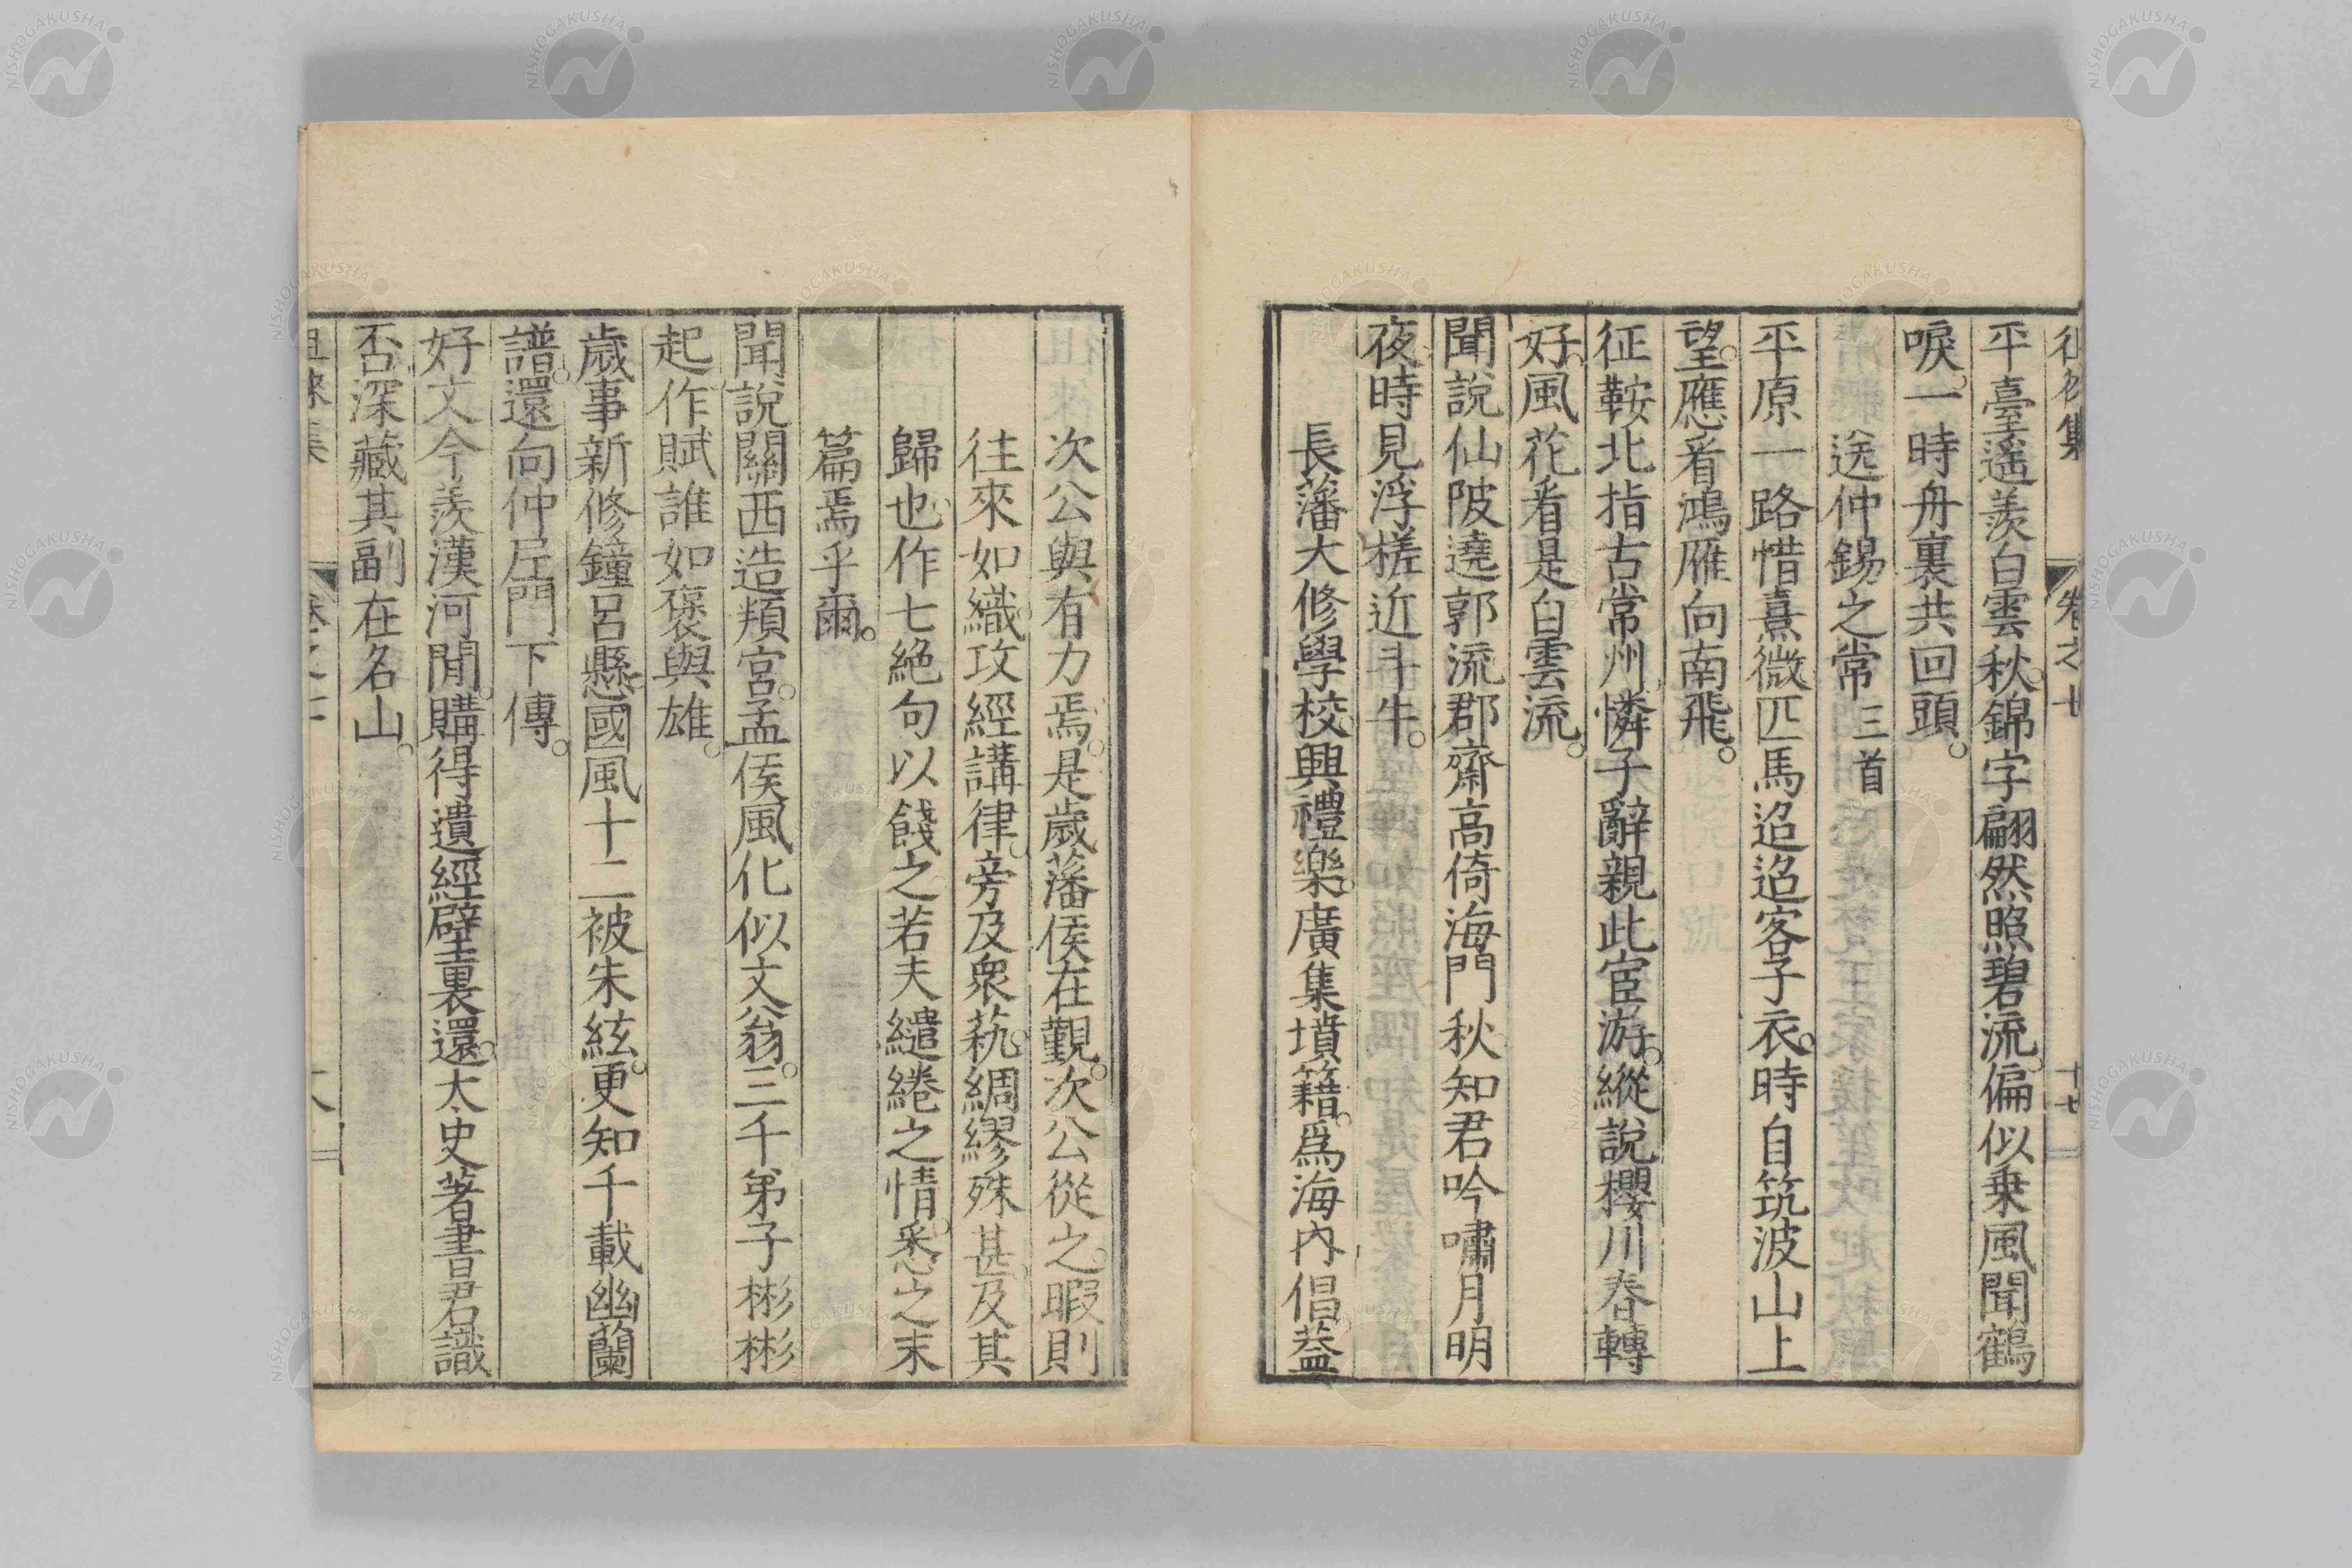 卷之七
十七
平臺遙羨白雲秋。錦字翩然照碧流。偏似乘風聞鶴
唳。一時舟裏共回頭。
送仲錫之常三首
平原一路惜熹微匹馬迢迢客子衣。時自筑波山上
望。應看鴻雁向南飛。
征鞍北指古常州憐子辭親此宦游。縱說櫻川春轉
好。風花看是白雲流。
聞說仙陂遶郭流郡齋高倚海門秋知君吟嘯月明
夜。時見浮槎近斗牛。
長藩大修學校。興禮樂。廣集墳籍。爲海內倡。葢
次公與有力焉。是歲藩侯在覲。次公從之。暇則
往來如織。攻經講律。旁及衆藝。綢繆殊甚。及其
歸也。作七絕句以餞之若夫繾綣之情。悉之末
篇焉乎爾。
聞說關西造頖宮。孟侯風化似文翁。三千弟子彬彬
起作賦誰如褒與雄。
歲事新修鐘呂懸國風十二被朱絃。更知千載幽蘭
譜。還向仲尼門下傳。
好文今羨漢河間。購得遺經壁裏還。太史著書君識
否深藏其副在名山。
NISHOGAKUSHA